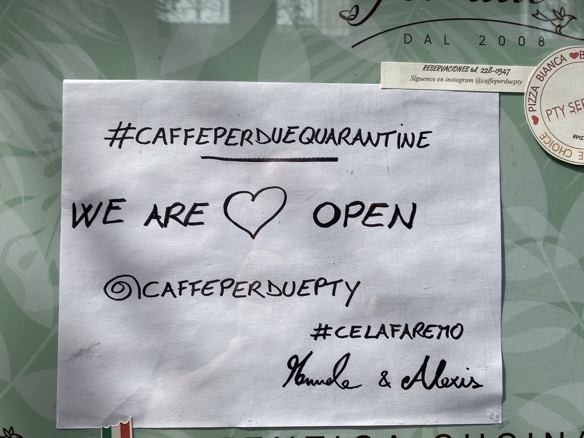 DAL 2008
RESERVACIONES al 228-0547
Siguenos en instagram @caffeperduepty
PIZZA BIANCA
PTY SE
CHOICE
#CAFFEPERDUEQUARANTINE
WE ARE ♡ OPEN
@CAFFEPERDUEPTY
#CELAFAREMO
Manuela & Alexis